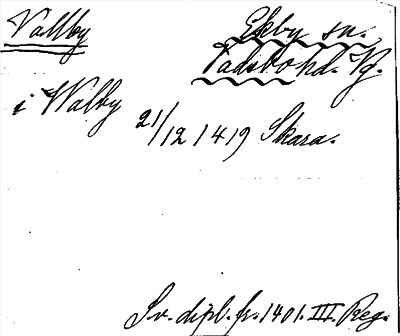 Vallby
Ekby sn.
Vadsbo hd. Vg.
i Walby
21/12 1419 Skara.
Sv. dipl. fr. 1401. III. Reg.